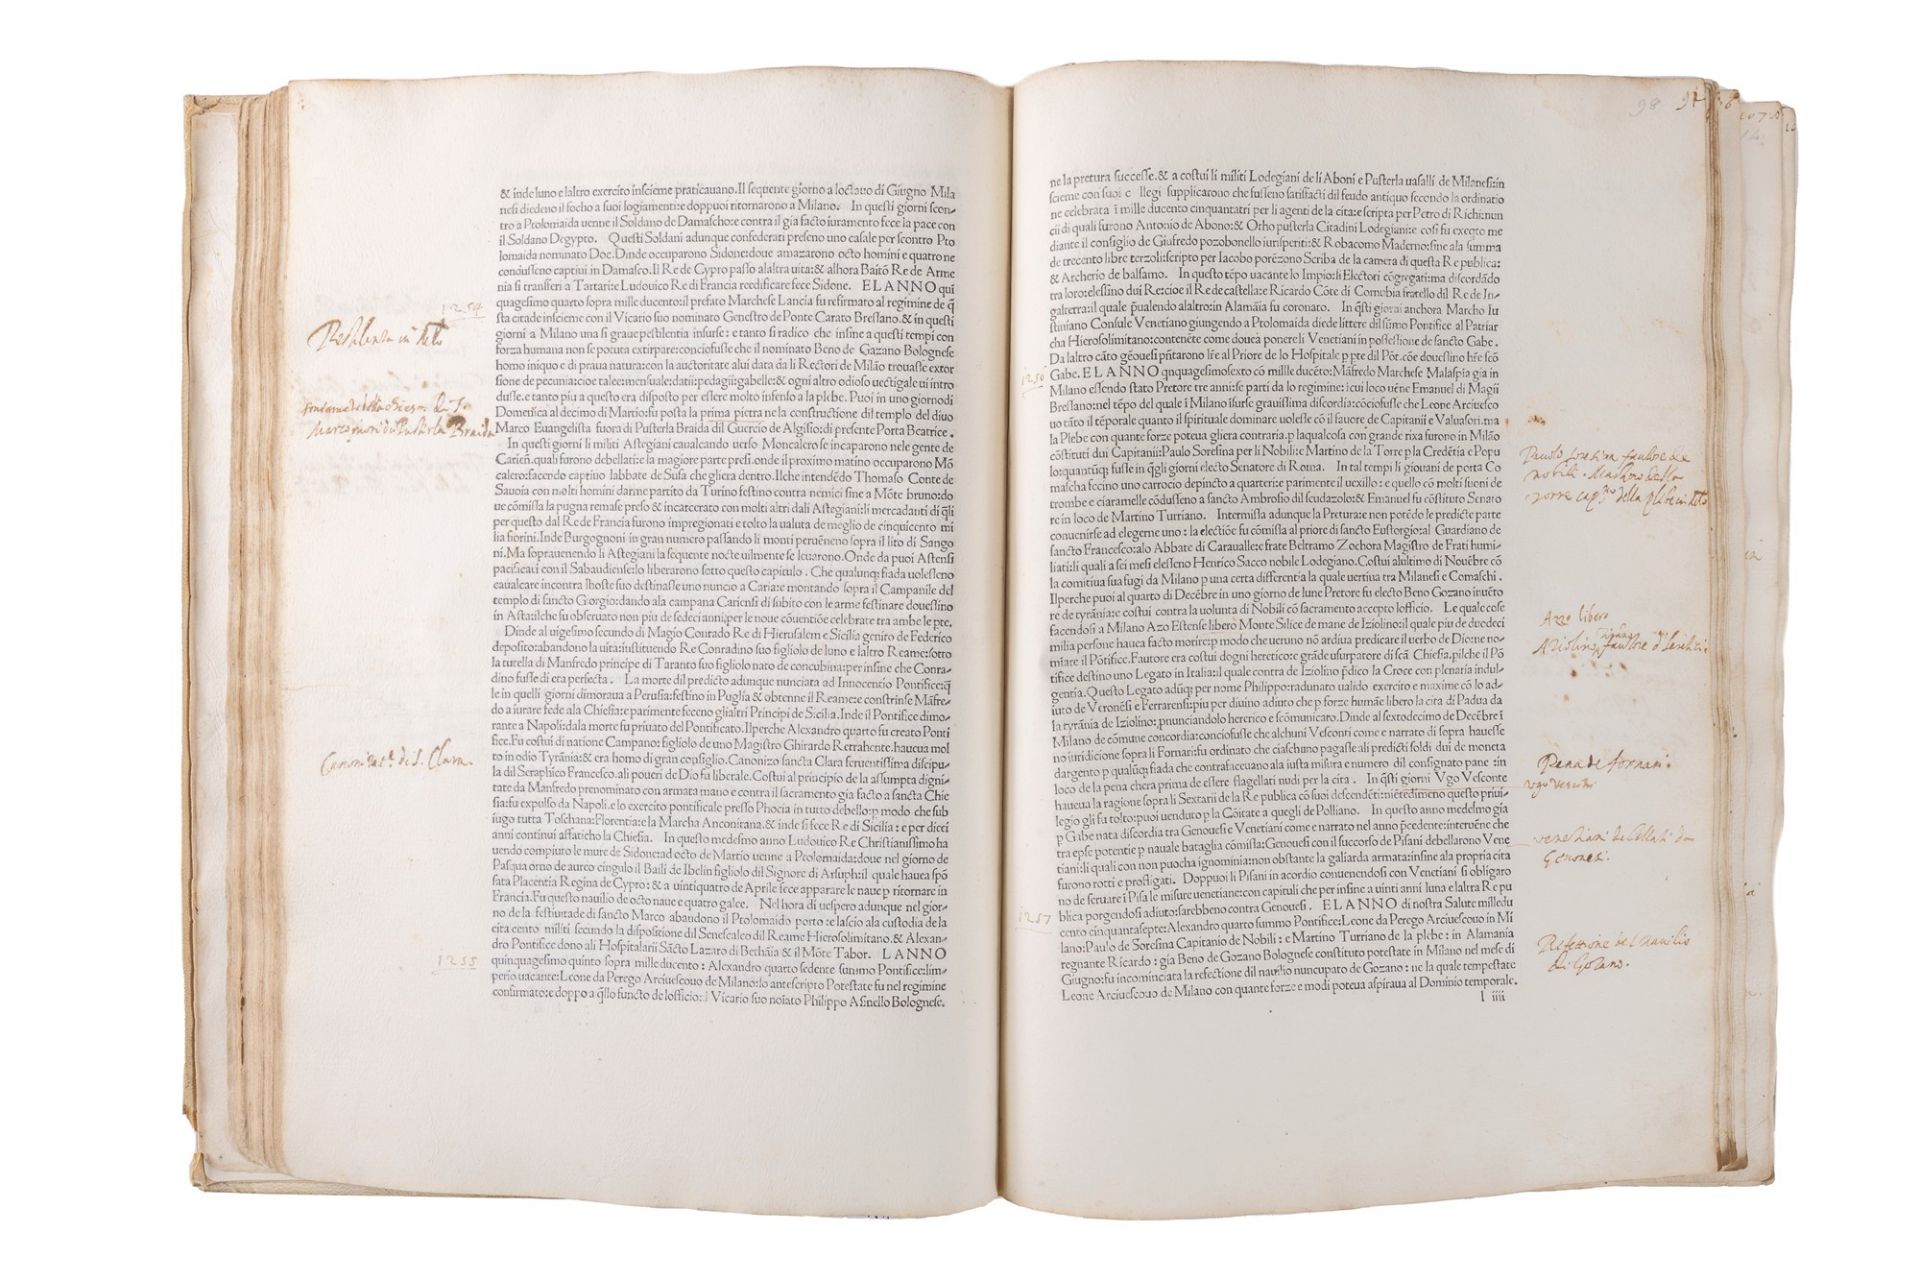 & inde luno e laltro exercito inscieme praticauano.Il sequente giorno a loctauo di Giugno Mila
nesi diedeno il focho a suoi logiamenti:e doppuoi ritornarono a Milano. In questi giorni scon-
tro a Ptolomaida uenne il Soldano de Damascho:e contra il gia facto iuramento fece la pace con
il Soldano Degypto. Questi Soldani adunque confederati preseno uno casale per scontro Pto
lomaida nominato Doc.Dinde occuparono Sidone:doue amazarono octo homini e quatro ne
condusseno captiui in Damasco.Il Re de Cypro passo alaltra uita:& alhora Baitō Re de Arme
nia si transferi a Tartari:e Ludouico Re di Francia reedificare fece Sidone. EL ANNO qui
1254
quagesimo quarto sopra mille ducento:il prefato Marchese Lancia fu refirmato al regimine de q̄
sta citade inscieme con il Vicario suo nominato Genestro de Ponte Carato Bressano.& in questi
giorni a Milano una si graue pestilentia insurse: e tanto si radico che insine a questi tempi con
forza humana non se potuta extirpare:conciosusse che il nominato Beno de Gazano Bolognese
homo iniquo e di praua natura:con la auctoritate alui data da li Rectori de Milāo trouasse extor
sione de pecunia:cioe talee:mensuale:datii:pedagii:gabelle:& ogni altro odioso uectigale ui intro
dusse.e tanto piu a questo era disposto per essere molto infenso a la plebe. Puoi in uno giorno di
Domenica al decimo di Martio:fu posta la prima pietra ne la constructione dil templo del diuo
Marco Euangelista fuora di Pusterla Braida dil Guercio de Algisio:di presente Porta Beatrice.
In questi giorni li militi Astegiani caualcando uerso Moncalero se incaparono nele gente de
Carien̄.quali furono debellati:e la magiore parte presi.onde il proximo matino occuparono Mō
calero:facendo captiuo labbate de Susa che gliera dentro.Ilche intendēdo Thomaso Conte de
Sauoia con molti homini darme partito da Turino festino contra nemici sine a Mōte bruno:do
ue cōmissa la pugna remase preso & incarcerato con molti altri dali Astegiani:li mercadanti di q̄li
per questo dal Re de Francia furono impregionati e tolto la ualuta de meglio de cinquicento mi
lia fiorini.Inde Burgognoni in gran numero passando li monti peruēneno sopra il lito di Sango
ni.Ma soprauenendo li Astegiani la sequente nocte uilmente se leuarono.Onde da puoi Astensi
pacificati con il Sabaudiense:lo liberarono sotto questo capitulo. Che qualunq; fiada uolesseno
caualcare incontra lhoste suo destinasse uno nuncio a Caria:e montando sopra il Campanile del
templo di sancto Giorgio:dando ala campana Cariensi di subito con le arme festinare douestino
in Asta:ilche fu obseruato non piu de sedeci anni:per le noue cōuentiōe celebrate tra ambe le pte.
Dinde al uigesimo secundo di Magio Conrado Re di Hierusalem e Sicilia genito de Federico
deposito:abandono la uita:instituendo Re Conradino suo figliolo de luno e laltro Reame:sotto
la tutella di Manfredo principe di Taranto suo figliolo nato de concubina:per insine che Conra-
dino fusse di era perfecta. La morte dil predicto adunque nunciata ad Innocentio Pontifice:q̄
le in quelli giorni dimoraua a Perusia:festino in Puglia & obtenne il Reame:e constrinse Māfre-
do a iurare fede ala Chiesia:e parimente feceno glialtri Principi de Sicilia. Inde il Pontifice dimo-
rante a Napoli:dala morte fu priuato del Pontificato.Ilperche Alexandro quarto fu creato Ponti
fice.Fu costui di natione Campano:figliolo de uno Magistro Ghirardo Retrahente.haueua mol
to in odio Tyrānia:& era homo di gran consiglio. Canonizo sancta Clara feruentissima discipu-
la dil Seraphico Francesco.ali poueri de Dio fu liberale. Costui al principio de la assumpta digni-
tate da Manfredo prenominato con armata mano e contra il sacramento gia facto a sancta Chie
sia:fu expulso da Napoli.e lo exercito pontificale presso Phocia in tutto debello:p modo che sub
iugo tutta Toschana:Florentia:e la Marcha Anconitana.& inde si fece Re di Sicilia: e per dieci
anni continui affaticho la Chiesia. In questo medesmo anno Ludouico Re Christianissimo ha
uendo compiuto le mure de Sidone:ad octo de Martio uenne a Ptolomaida:doue nel giorno de
Pasqua orno de aureo cingulo il Baili de Ibelin figliolo dil Signore di Arsuph:il quale hauea spō
sata Placentia Regina de Cypro: & a uintiquatro de Aprile fece apparare le naue p ritornare in
Francia.Fu questo nauilio de octo naue e quatro galee. Nel hora di uespero adunque nel gior-
no de la festiuitade di sancto Marco abandono il Ptolomaido porto:e lascio ala custodia de la
cita cento militi secundo la dispositione dil Senescalco dil Reame Hierosolimitano.& Alexan-
dro Pontifice dono ali Hospitalarii Sācto Lazaro di Bethāia & il Mōte Tabor. L ANNO
1255
quinquagesimo quinto sopra mille ducento: Alexandro quarto sedente summo Pontifice:lim-
perio uacante:Leone da Perego Arciuescouo de Milano:lo antescripto Potestate fu nel regimine
confirmato:e doppo a q̄llo functo de lofficio:ī Vicario suo noiato Philippo Asinello Bolognese.
Pestilenza in Mlo
Marco fuori di Pusterla Braida
Canonizatne di S. Clara.
98
ne la pretura successe.& a costui li militi Lodegiani de li Aboni e Pusterla uasalli de Milanesi:in
scieme con suoi c llegi supplicarono che fusseno satisfacti dil feudo antiquo secondo la ordinatio
ne celebrata ī mille ducento cinquantatri per li agenti de la cita:e scripta per Petro di Richi:nun
cii di quali furono Antonio de Abono:& Otho pusterla Citadini Lodegiani:e cosi fu exequto me
diante il consiglio de Giufredo pozobonello iurisperiti:& Robacomo Maderno:sine ala summa
de trecento libre terzoli:scripto per Iacobo porēzono Scriba de la camera di questa Re publica:
& Archerio de balsamo. In questo tēpo uacante lo Impio:li Electori cōgregati:ma discordādo
tra loro:elessino dui Re:cioe il Re de castella:e Ricardo Cōte di Cornubia fratello dil Re de In-
galterra:il quale p̄ualendo alaltro:in Alamāia fu coronato. In q̄sti giorni anchora Marcho Iu
stiniano Consule Venetiano giungendo a Ptolomaida diede littere dil sūmo Pontifice al Patriar
cha Hierosolimitano:contenēte come douea ponere li Venetiani in possessione de sancto Gabe.
Da laltro cāto gēouesi p̄ntarono lr̄e al Priore de lo Hospitale p pte dil Pōt.cōe douestino hr̄e scō
1256
Gabe. EL ANNO qnquagesimosexto cō mille ducēto:Māfredo Marchese Malaspia gia in
Milano essendo stato Pretore tre anni:se parti da lo regimine:i cui loco uēne Emanuel di Magii
Bressano:nel tēpo del quale ī Milano īsurse grauissima discordia:cōciofusse che Leone Arciuesco
uo tāto il tēporale quanto il spirituale dominare uolesse cō il fauore de Capitanii e Valuasori.ma
la Plebe con quante forze poteua gliera contraria.p laqualcosa con grande rixa furono in Milāo
cōstituti dui Capitanii:Paulo Soresina per li Nobili:e Martino de la Torre p la Credētia e Popu
lo:quantūq; fusse in q̄gli giorni electo Senatore di Roma. In tal tempi li giouani de porta Co
mascha fecino uno carrocio depincto a quarteri:e parimente il uexillo: e quello cō molti suoni de
trombe e ciaramelle cōdusseno a sancto Ambrosio dil scudazolo:& Emanuel fu cōstituto Senato
re in loco de Martino Turriano. Intermissa adunque la Pretura:e non potēdo le predicte parte
conuenirse ad elegerne uno: la electiōe fu cōmissa al priore di sancto Eustorgio:al Guardiano de
sancto Francesco:alo Abbate di Carauallee:e frate Beltramo Zochora Magistro de Frati humi-
liati:li quali a sei mesi elesseno Henrico Sacco nobile Lodegiano.Costui alultimo di Nouēbre cō
la comitiua sua fugi da Milano p una certa differentia la quale uertiua tra Milanesi e Comaschi.
Ilperche puoi al quarto di Decēbre in uno giorno de lune Pretore fu electo Beno Gozano inuēto
re de tyrānia:e costui contra la uolunta di Nobili cō sacramento accepto lofficio. Le quale cose
facendosi a Milano Azo Estense libero Monte Silice de mane de Iziolino:il quale piu de duodeci
milia persone hauea facto morire:p modo che ueruno nō ardiua predicare il uerbo de Dio:ne no-
miare il Pōtifice.Fautore era costui dogni heretico:e grāde usurpatore di scā Chiesia.pilche il Pō
tifice destino uno Legato in Italia:il quale contra de Iziolino p̄dico la Croce con plenaria indul-
gentia.Questo Legato adūq; per nome Philippo:radunato ualido exercito e maxime cō lo ad-
iuto de Veronēsi e Ferrarensi:piu per diuino adiuto che p forze humāe libero la cita di Padua da
la tyrānia de Iziolino:pnunciandolo heretico e scōmunicato. Dinde al sextodecimo de Decēbre ī
Milano de cōmune concordia:conciosusse che alchuni Vesconti come e narrato di sopra hauesse
no iuridicione sopra li Fornari:fu ordinato che ciaschuno pagasse ali predicti soldi dui de moneta
dargento p qualūq; fiada che contrafaceuano ala iusta misura e numero dil consignato pane :in
loco de la pena chera prima de essere flagellati nudi per la cita . In q̄sti giorni Vgo Vesconte
haueua la ragione sopra li Sextarii de la Re publica cō suoi descendēti:niētedimeno questo priui-
legio gli fu tolto:puoi uenduto p la Cōitate a quegli de Polliano. In questo anno medesmo gia
p Gabe nata discordia tra Genouesi e Venetiani come e narrato nel anno p̄cedente:interuēne che
tra epse potentie p nauale bataglia cōmissa:Genouesi con il succorso de Pisani debellarono Vene
tiani:li quali con non puocha ignominia:non obstante la galiarda armata:insine ala propria cita
furono rotti e profligati. Doppuoi li Pisani in acordio conuenendosi con Venetiani si obligaro
no de seruare i Pisa le misure uenetiane:con capituli che per insine a uinti anni luna e laltra Re pu
1257
blica porgendosi adiuto:sarebbeno contra Genouesi. EL ANNO di nostra Salute milledu
cento cinquantasepte:Alexandro quarto summo Pontifice:Leone da Perego Arciuescouo in Mi
lano:Paulo de Soresina Capitanio de Nobili: e Martino Turriano de la plebe: in Alamania
regnante Ricardo: gia Beno de Gozano Bolognese constituto potestate in Milano nel mese di
Giugno:fu incominciata la refectione dil nauilio nuncupato de Gozano: ne la quale tempestate
Leone Arciuescouo de Milano con quante forze e modi poteua aspiraua al Dominio temporale.
l iiii
Azzo libero
Pena de fornari.
ugo Vesconte
venetiani debellati da
Genouesi.
Refettione del Nauilio
di Gozano.